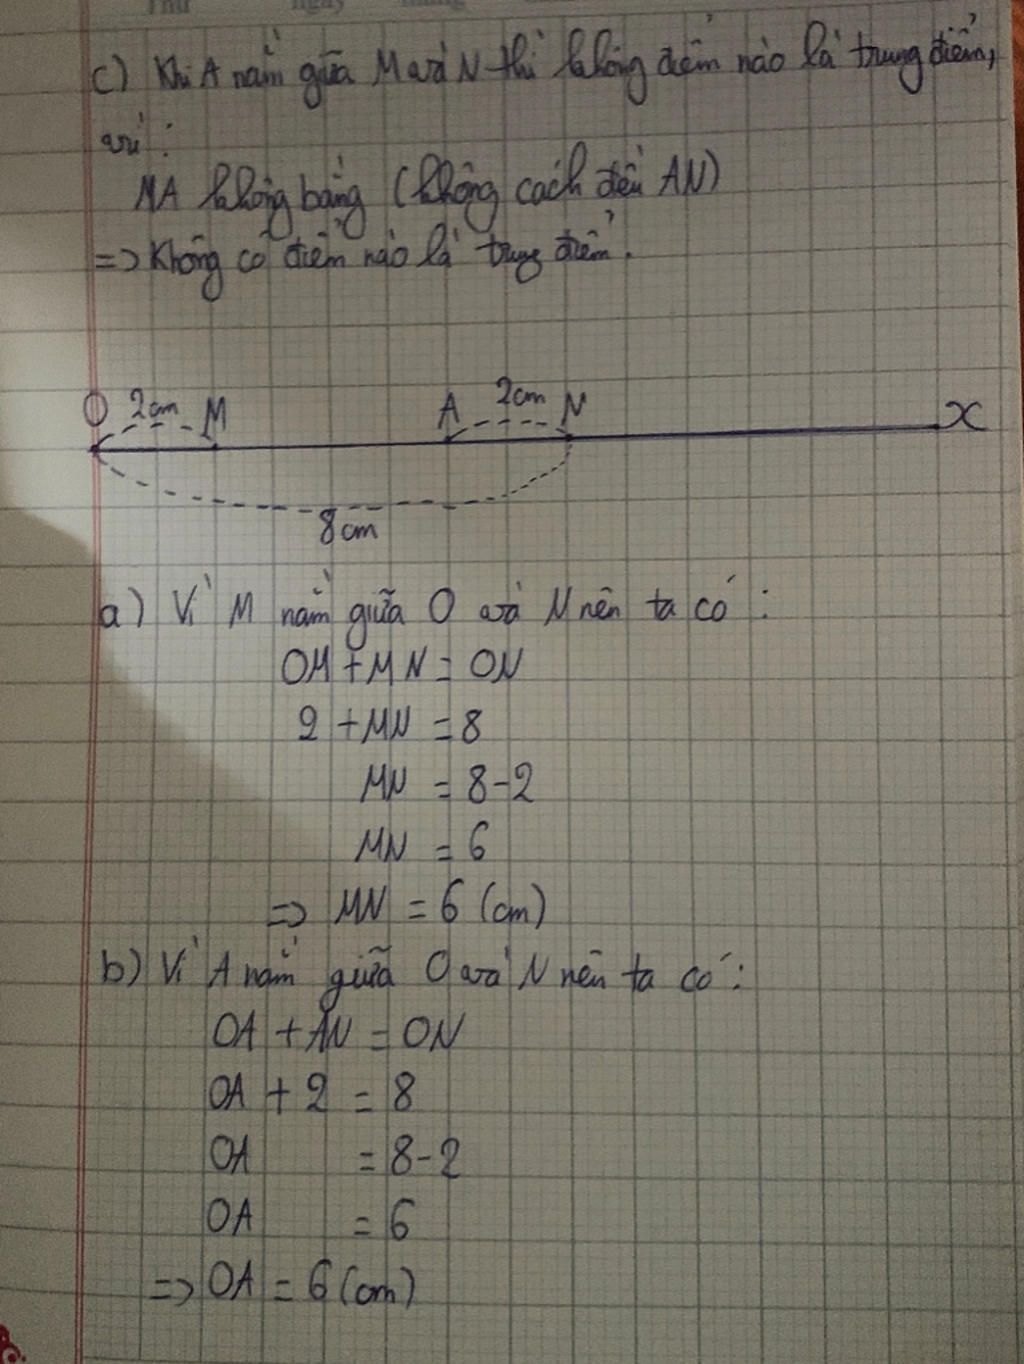 Thứ ngày tháng
c) Khi A nằm giữa M và N thì không điểm nào là trung điểm,
vì :
MA không bằng (không cách đều AN)
=> Không có điểm nào là trung điểm.
O 2cm M A 2cm N x
8cm
a) Vì M nằm giữa O và N nên ta có :
OM + MN = ON
2 + MN = 8
MN = 8-2
MN = 6
=> MN = 6 (cm)
b) Vì A nằm giữa O và N nên ta có :
OA + AN = ON
OA + 2 = 8
OA = 8-2
OA = 6
=> OA = 6 (cm)